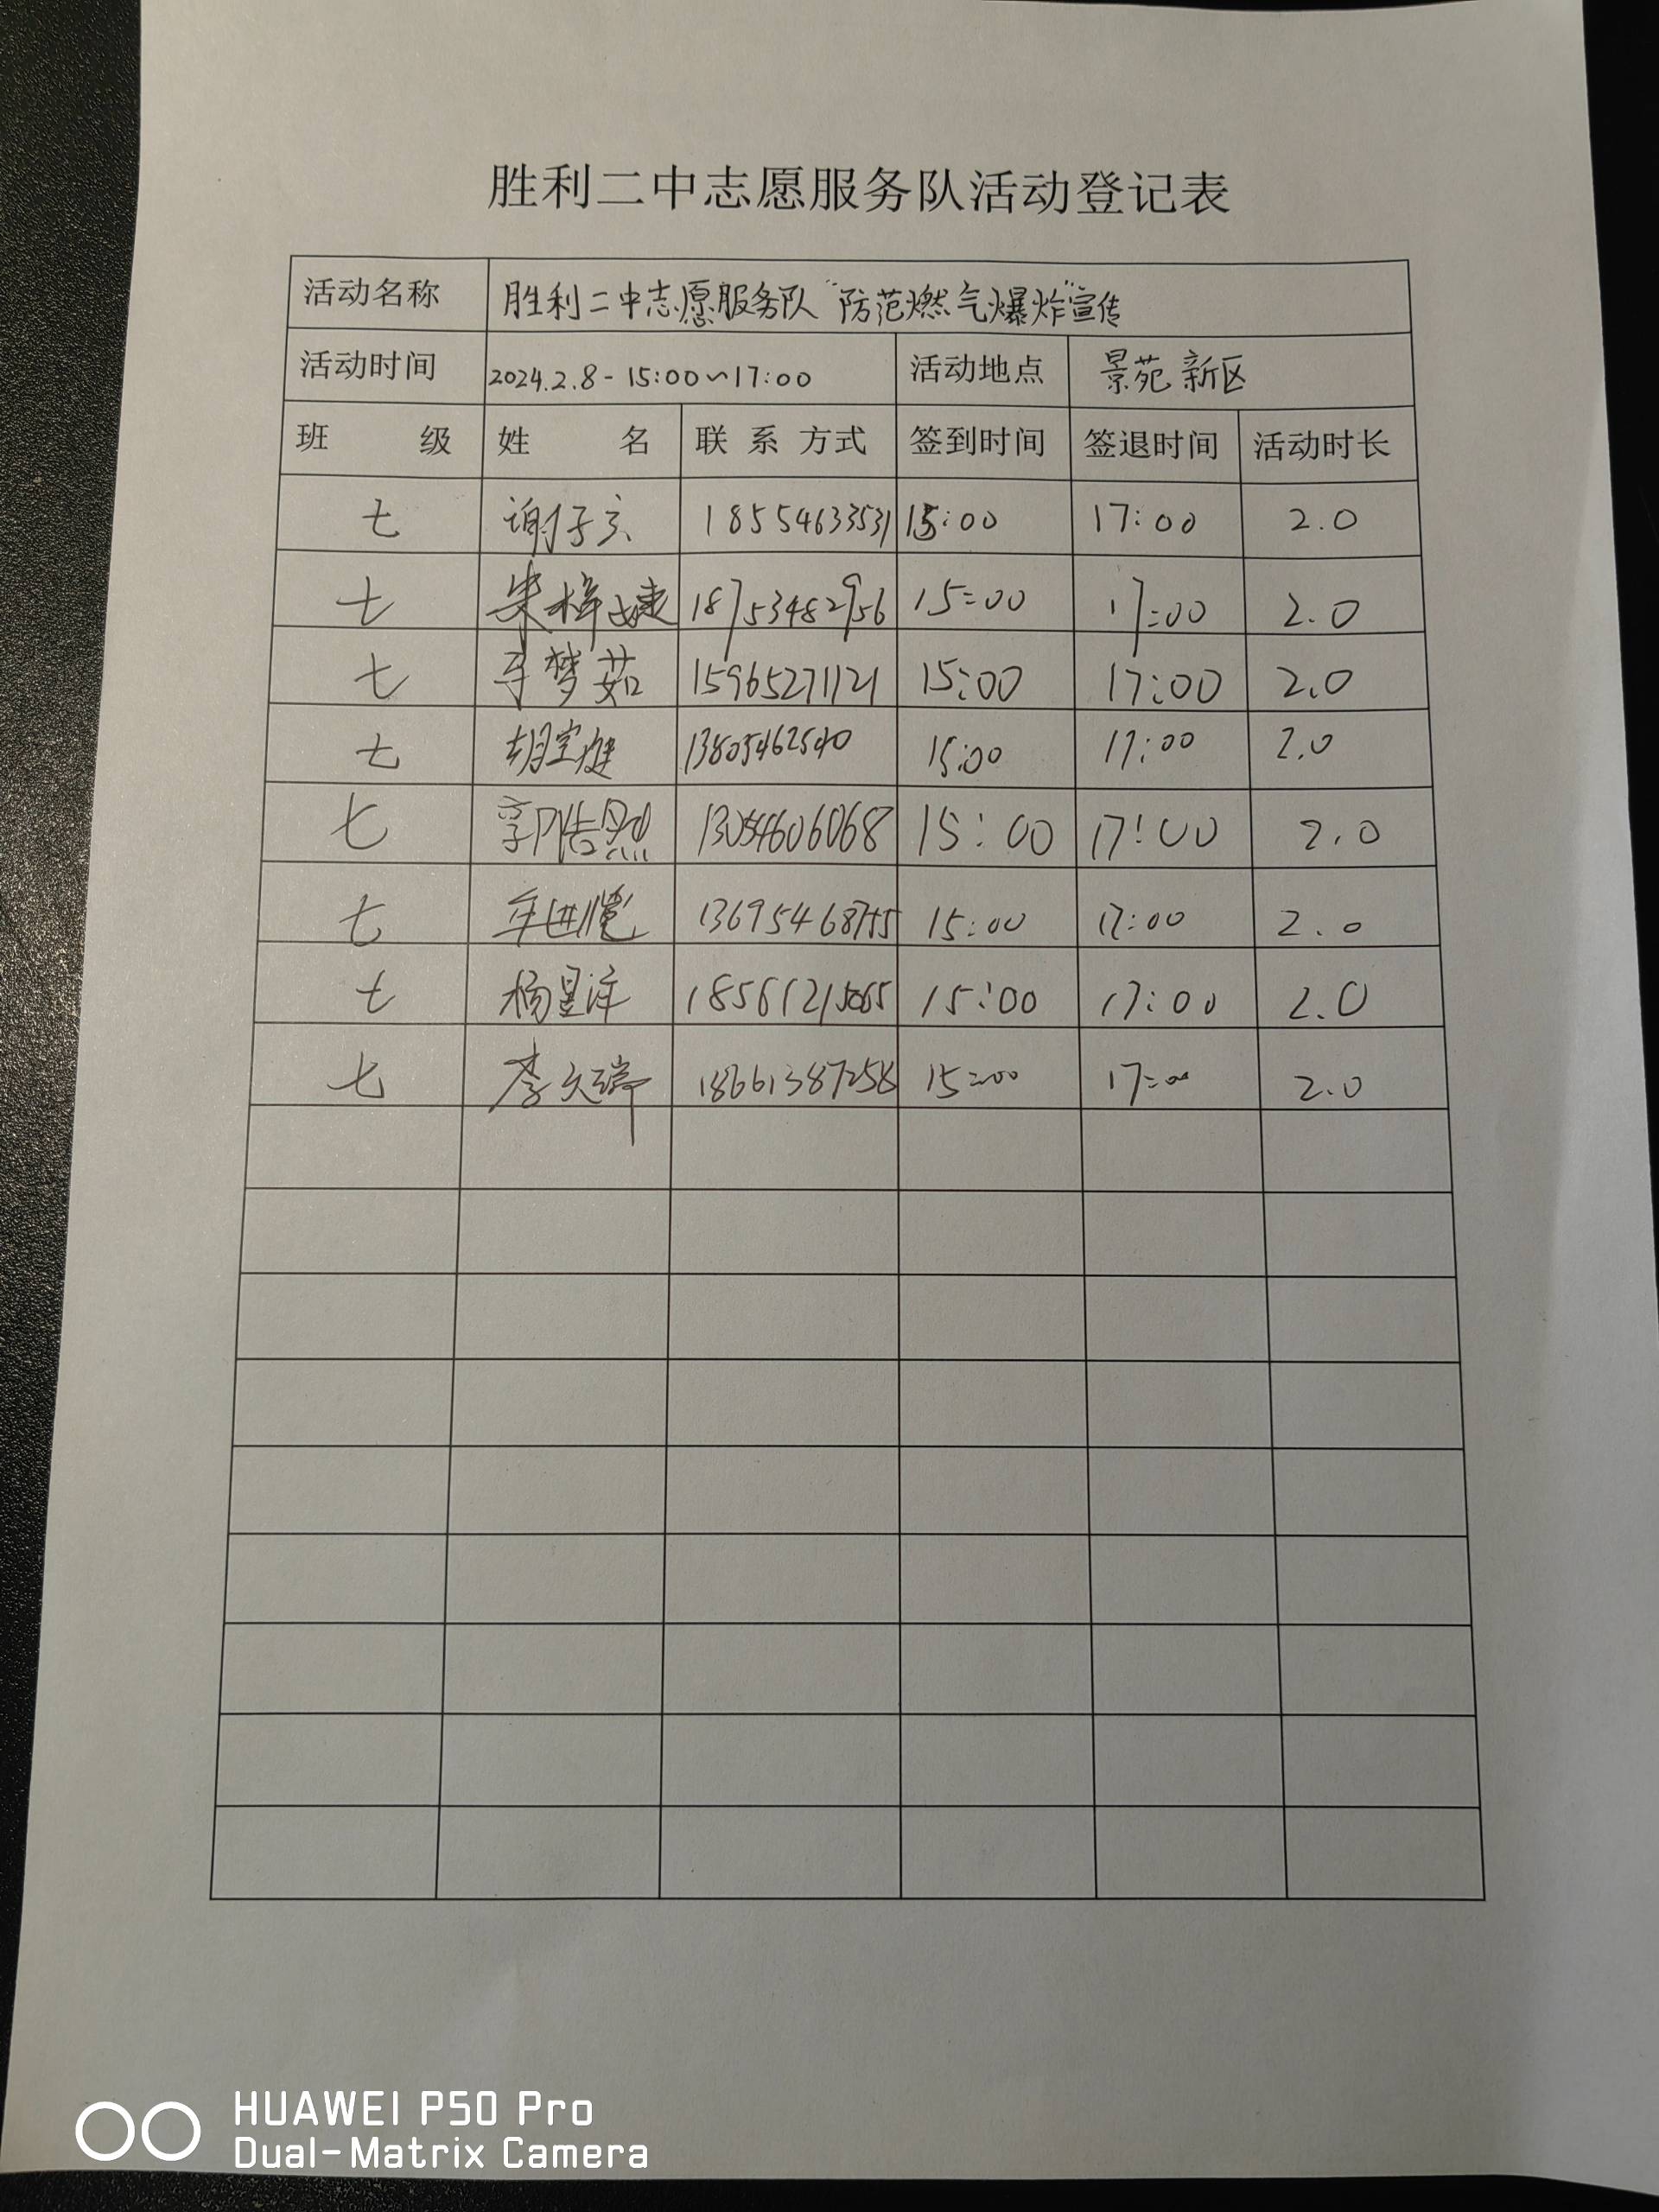 胜利二中志愿服务队活动登记表
活动名称 胜利二中志愿服务队“防范燃气爆炸”宣传
活动时间 2024.2.8-15:00~17:00 活动地点 景苑新区
班级 姓名 联系方式 签到时间 签退时间 活动时长
七 18554633531 15:00 17:00 2.0
七 朱梓婕 18753482956 15:00 17:00 2.0
七 李梦茹 15965271121 15:00 17:00 2.0
七 13805462540 15:00 17:00 2.0
七 郭浩然 13054606068 15:00 17:00 2.0
七 13695468755 15:00 17:00 2.0
七 杨昱泽 18561215065 15:00 17:00 2.0
七 李文瑞 18661387258 15:00 17:00 2.0
HUAWEI P50 Pro
Dual-Matrix Camera